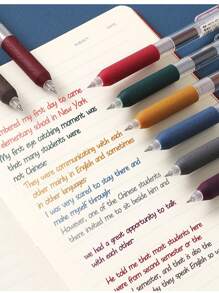 mbered my first day to came
elementary school in New York
My first eye catching moment was
that many students were
not Chinese
They were communicating with each
other mainly in English and sometimes
in other languages
I was very scared to stay there and
make myself through
However, one of the Chinese students
there invited me to sit beside him and
we had a great opportunity to talk
with each other
He told me that most students here
were from second semester or the
semester, and that is the
they speak English so w